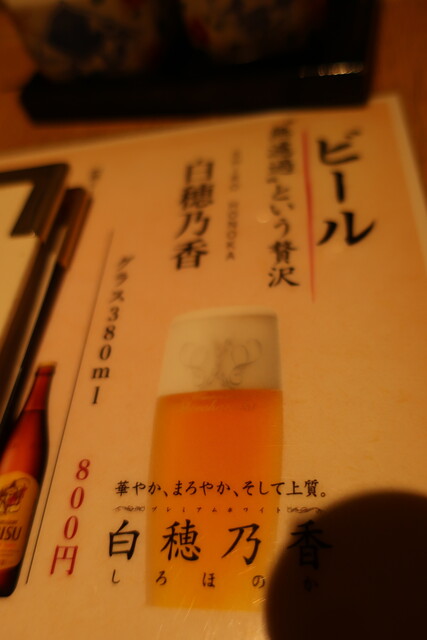 ビール
"無濾過"という贅沢
白穂乃香
HONOKA
グラス380ml
800円
華やか、まろやか、そして上質。
プレミアムホワイト
白穂乃香
しろほのか